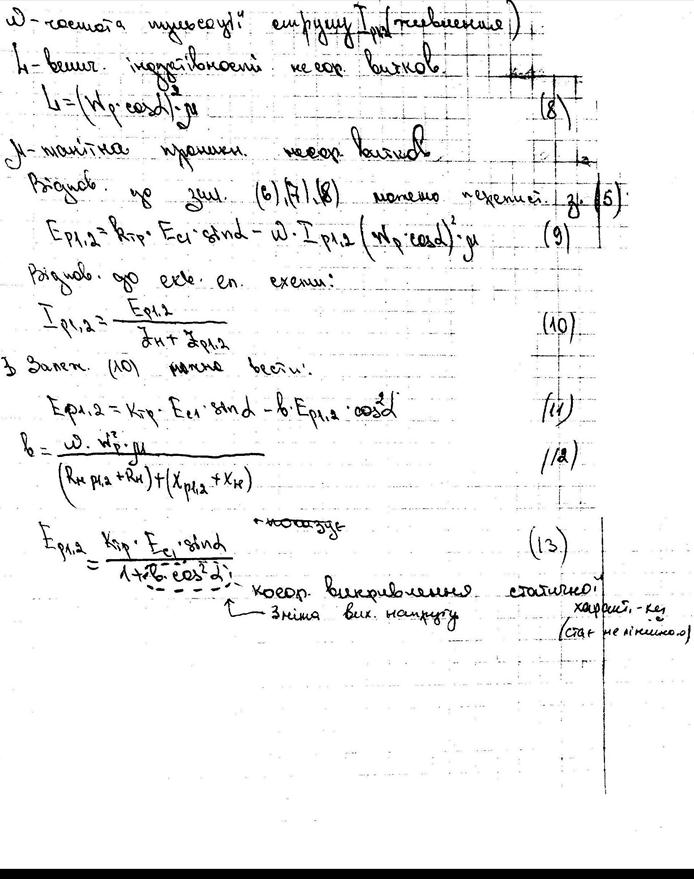 ω - частота пульсації струму I р1,2 (живлення)
L - велич. індуктивності несор. витків.
L = (Wр · cosα)² · μ (8)
μ - магнітна проникн. несор. витків.
Віднов. до зал. (6),(7),(8) можемо перепист з. (5):
Eр1,2 = kтр · Ec1 · sinα - ω · Iр1,2 (Wр · cosα)² · μ (9)
Віднов. до екв. ел. схеми:
Iр1,2 = Eр1,2 / (Zн + Zр1,2) (10)
З Залеж. (10) можна вести:
Eр1,2 = Kтр · Ec1 · sinα - в · Eр1,2 · cos²α (11)
в = ω · Wр² · μ / ((Rн р1,2 + Rн) + (Xр1,2 + Xн)) (12)
Eр1,2 = Kтр · Ec1 · sinα / (1 + в · cos²α) (13)
викривлення статичної
характ-ки
Зніма вих. напругу
(стає не лінійною)